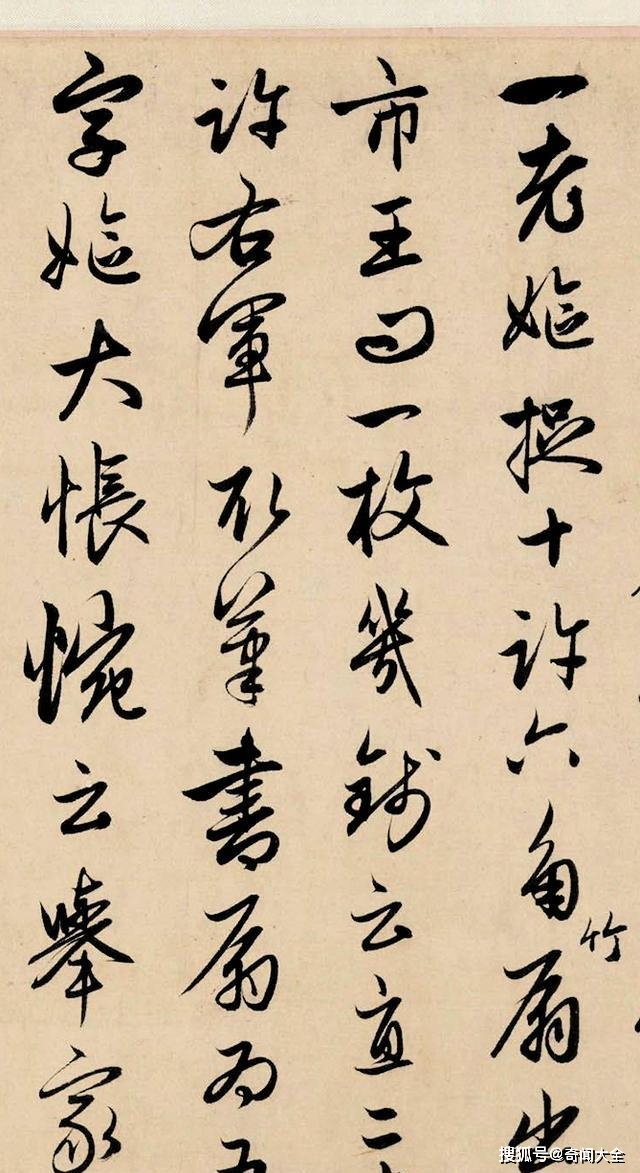 一老嫗捉十許六角竹扇出
市王問一枚幾錢云直二
許右軍取筆書扇為五
字嫗大悵惋云舉家
搜狐号@奇闻大全